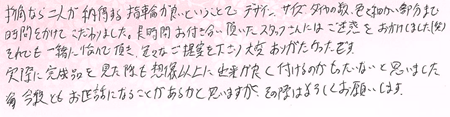 折角なら二人が納得する指輪が良いということで デザイン、サイズ、ダイヤの数、色と細かい部分まで
時間をかけてこだわりました。長時間お付き合い頂いたスタッフさんにはご迷惑をおかけしました(笑)
それでも一緒に悩んで頂き、色々なご提案を下さり大変ありがたかったです。
実際に完成品を見た際も想像以上に出来が良く付けるのがもったいないと思いました
今後ともお世話になることがあるかと思いますが、その際はよろしくお願いします。